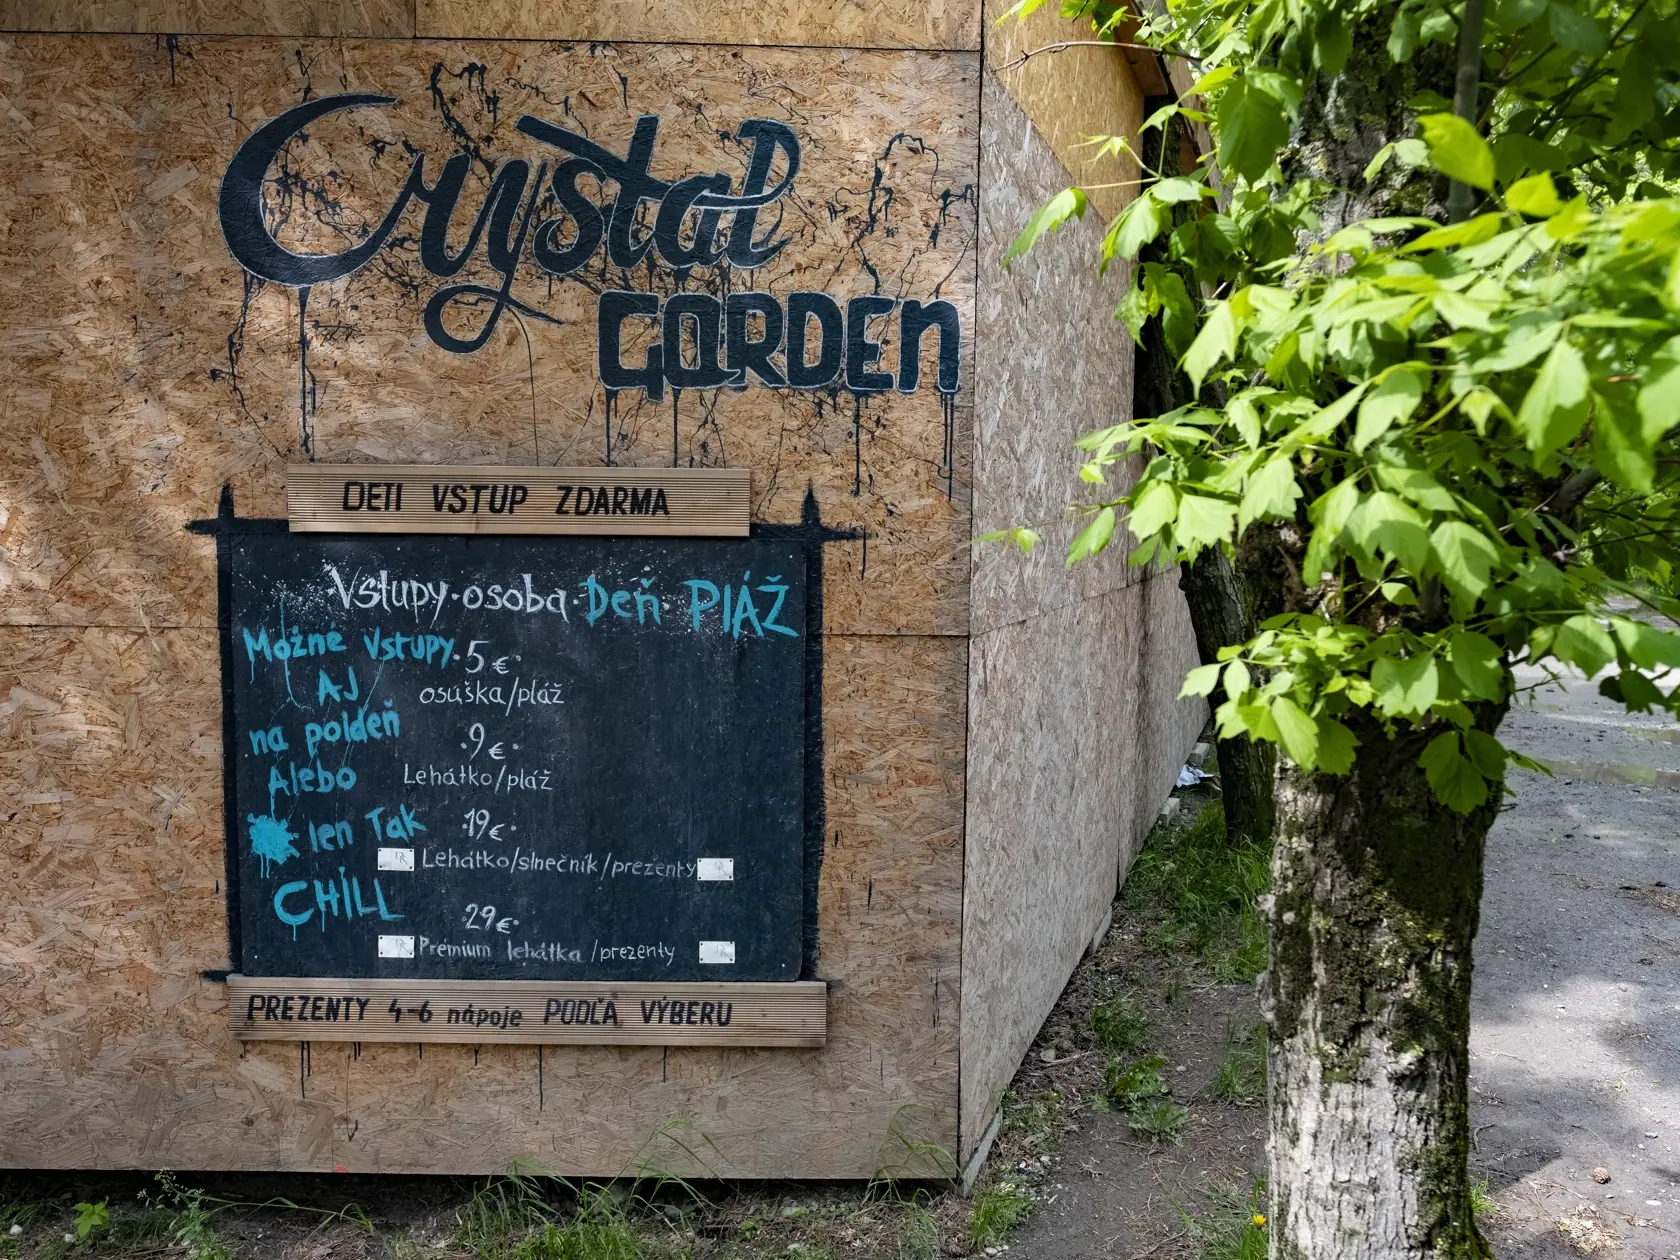 Crystal
GARDEN
DETI VSTUP ZDARMA
Vstupy·osoba·Deň PláŽ
Možné Vstupy
AJ
na poldeň
Alebo
len Tak
CHÍLL
·5€·
osuška/pláž
·9€·
Lehátko/pláž
·19€·
Lehátko/slnečník/prezenty
·29€·
Prémium lehátka /prezenty
PREZENTY 4-6 nápoje PODĽA VÝBERU